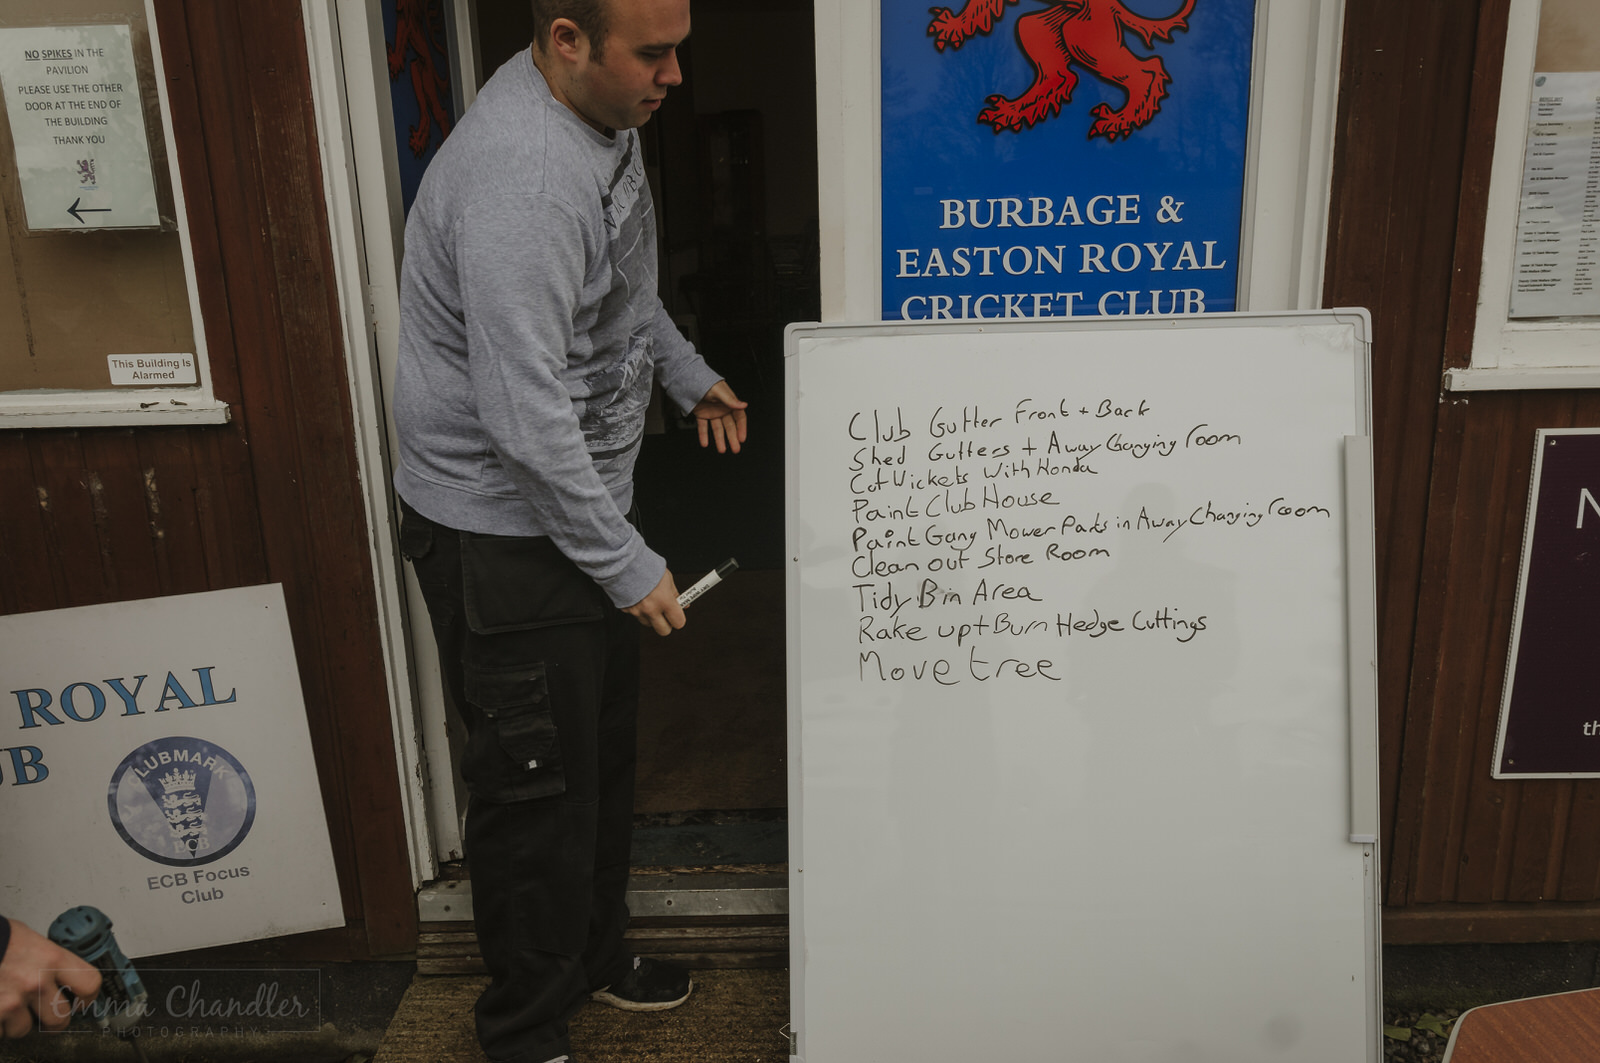 NO SPIKES IN THE
PAVILION
PLEASE USE THE OTHER
DOOR AT THE END OF
THE BUILDING
THANK YOU
This Building Is
Alarmed
BURBAGE &
EASTON ROYAL
CRICKET CLUB
Club Gutter Front + Back
Shed Gutters + Away Changing room
Cut Wickets With Honda
Paint Club House
Paint Gang Mower Parts in Away Changing room
Clean out Store Room
Tidy Bin Area
Rake up + Burn Hedge Cuttings
Move tree
ROYAL
UB
LUBMARK
ECB
ECB Focus
Club
N
th
Emma Chandler
PHOTOGRAPHY